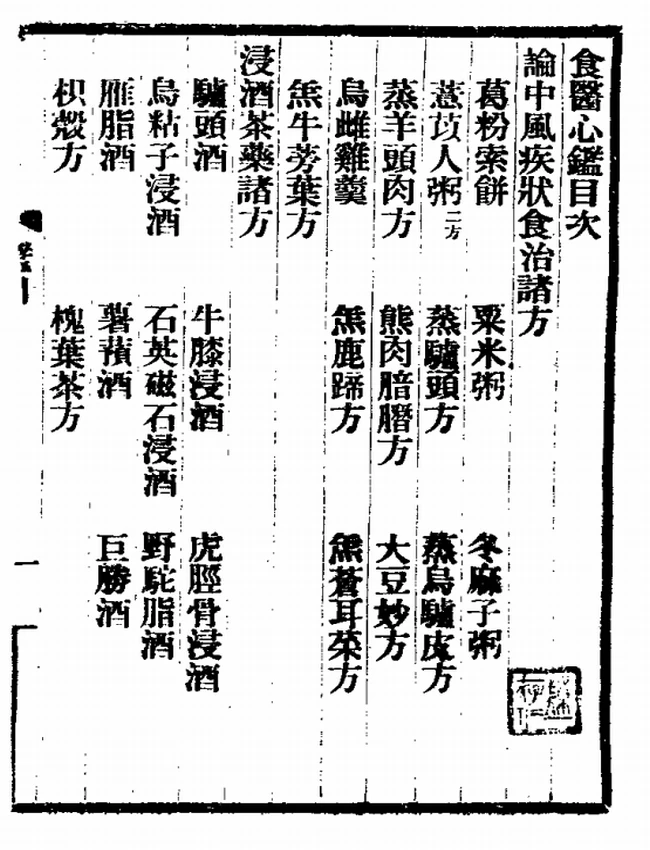 食醫心鑑目次
論中風疾狀食治諸方
葛粉索餅 粟米粥 冬麻子粥
薏苡人粥二方 蒸驢頭方 蒸烏驢皮方
蒸羊頭肉方 熊肉腤䐶方 大豆妙方
烏雌雞羹 缹鹿蹄方 缹蒼耳菜方
缹牛蒡葉方
浸酒茶藥諸方
驢頭酒 牛膝浸酒 虎脛骨浸酒
烏粘子浸酒 石英磁石浸酒 野駝脂酒
雁脂酒 薯蕷酒 巨勝酒
枳殼方 槐葉茶方
一